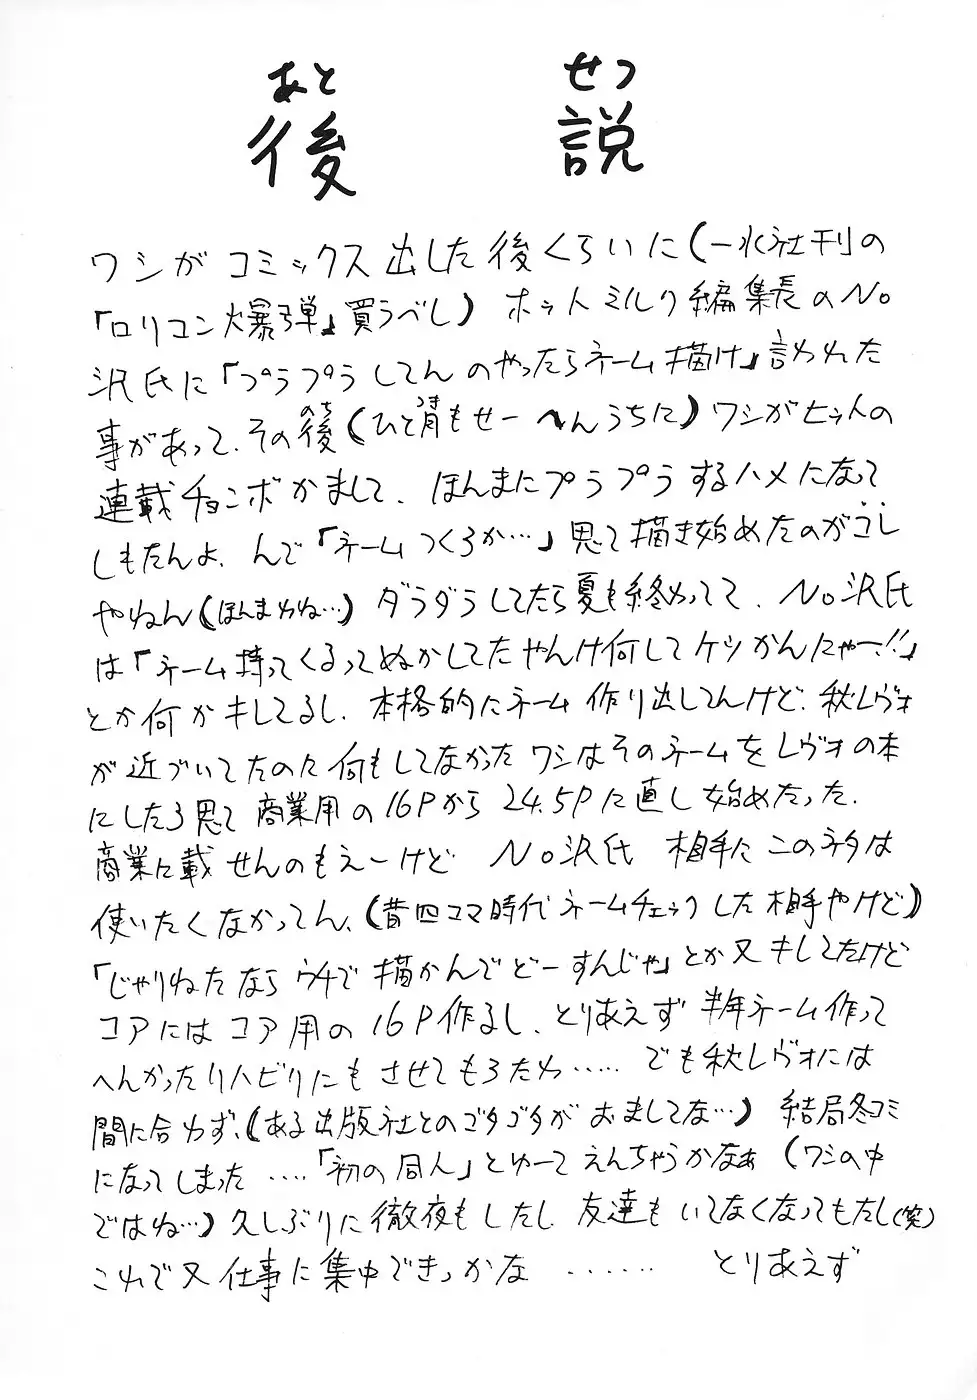 あと せつ
後 説
ワシがコミックス出した後くらいに(一水社刊の
「ロリコン爆弾」買うべし) ホットミルク編集長のNo
沢氏に「プラプラしてんのやったらネーム描け」言われた
事があって、その後(のち)(ひと月(つき)もせーへんうちに)ワシがヒットの
連載チョンボかまして、ほんまにプラプラするハメになって
しもたんよ、んで「ネームつくるか…」思て描き始めたのがコレ
やねん(ほんまかね…) ダラダラしてたら夏も終わってて、No沢氏
は「ネーム持ってくるってぬかしてたやんけ何してケツかんにゃー!!」
とか何かキしてるし、本格的にネーム作り出してんけど、秋レヴォ
が近づいてたのに何もしてなかったワシはそのネームをレヴォの本
にしたろ思て商業用の16Pから24.5Pに直し始めたった.
商業に載せんのもえーけど No沢氏 相手にこのネタは
使いたくなかってん、(昔四コマ時代ネームチェックした相手やけど)
「じゃりねたならウチで描かんでどーすんじゃ」とか又キしてたけど
コアにはコア用の16P作るし、とりあえず半年ネーム作って
へんかったリハビリにもさせてもろたわ…… でも秋レヴォには
間に合わず、(ある出版社とのゴタゴタがおましてな…) 結局冬コミ
になってしまった ….「初の同人」とゆーてえんちゃうかなぁ (ワシの中
ではね…) 久しぶりに徹夜もしたし 友達もいてなくなってもたし(笑)
これで又仕事に集中できっかな ……… とりあえず